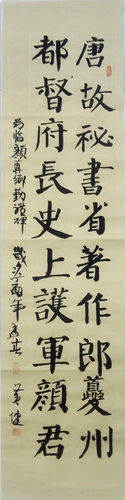 唐故祕書省著作郎夔州
都督府長史上護軍顏君
顏真卿勤禮碑
歲次丁酉年